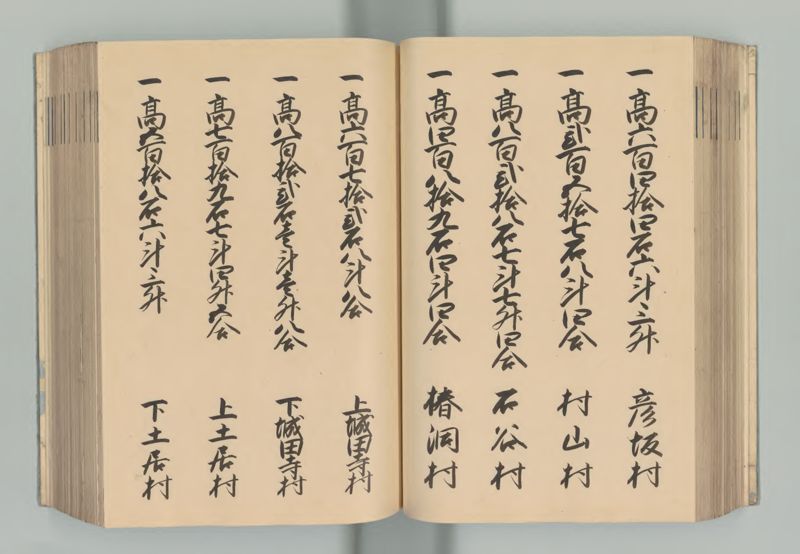 一 高六百四拾四石六斗三升 彦坂村
一 高弐百五拾七石八斗四合 村山村
一 高八百弐拾八石七斗七升四合 石谷村
一 高四百八拾九石四斗四合 椿洞村
一 高六百七拾弐石八斗八合 上城田寺村
一 高八百拾弐石壱斗壱升八合 下城田寺村
一 高七百拾九石七斗四升五合 上土居村
一 高五百拾八石六斗三升 下土居村